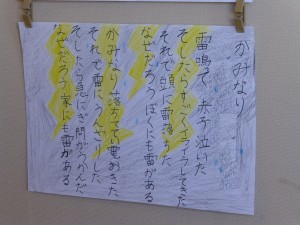 かみなり
雷鳴て 赤子泣いた
そしたらすごくイライラしてきた
それで頭に雷落ちた
なぜだろうぼくにも雷がある
かみなり落ちてい電おきた
それで雷にうんざりした
そしたら急にぎ問がうかんだ
なぜだろう家にも雷がある